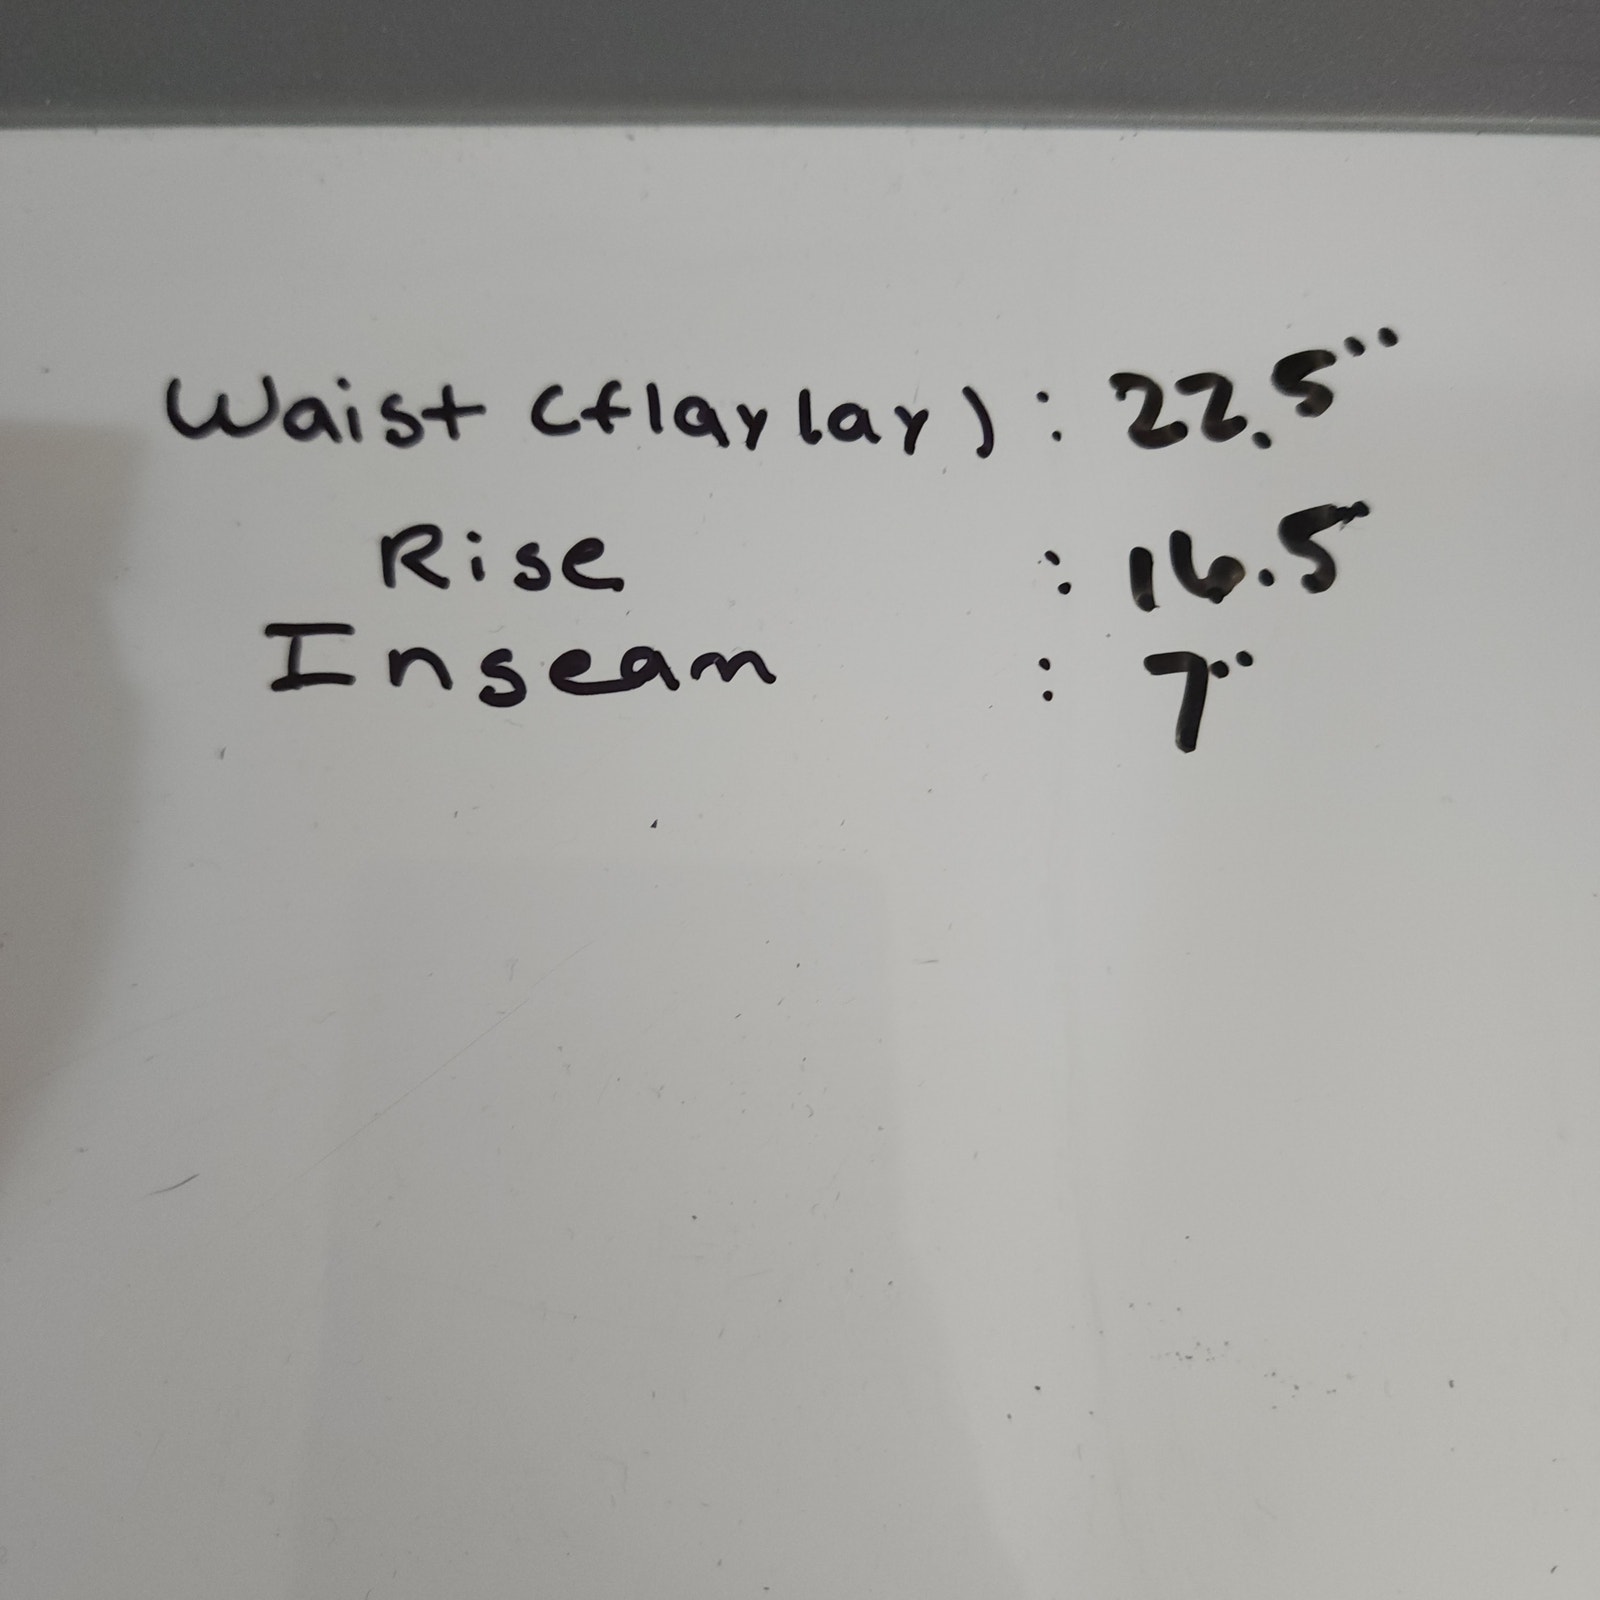 Waist (flaylay) : 22.5"
Rise : 16.5"
Inseam : 7"